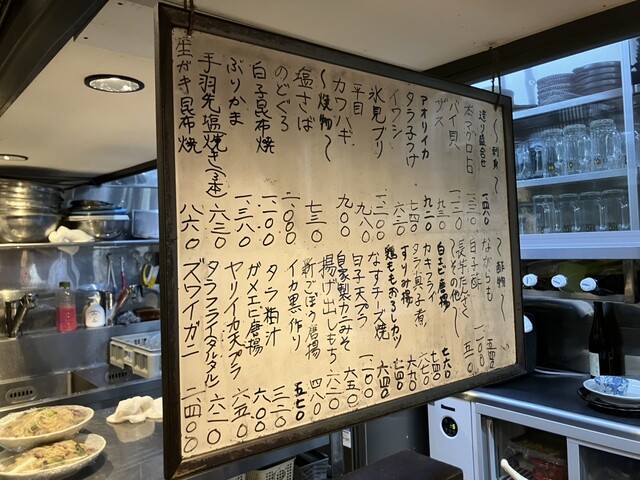 〜刺身〜
造り盛合せ 一四六〇
バイ貝 一三一〇
ブス 九三〇
アオリイカ 九二〇
タラ子つけ 七四〇
イワシ 六三〇
氷見ブリ 一二一〇
平目 九八〇
カワハギ 九〇〇
〜焼物〜
塩さば 七三〇
のどぐろ 二〇〇〇
白子昆布焼 一二〇〇
ぶりかま 一三八〇
手羽先塩焼き(2本) 六三〇
生がき昆布焼 八六〇
〜酢物〜
ながらも 五四〇
白子酢 一一〇〇
長芋たんざく 五一〇
〜その他〜
白エビ唐揚 七六〇
カキフライ 七四〇
タラ真子煮 六七〇
すりみ揚 七四〇
鶏ももおろしカツ 六六〇
なすチーズ焼 六四〇
白子天プラ 一一〇〇
自家製カニみそ 六五〇
揚げ出しもち 六二〇
新ごぼう唐揚 四八〇
イカ黒作り 五七〇
タラ粕汁 三二〇
ガメエビ唐揚 六〇〇
ヤリイカ天プラ 六五〇
タラフライタルタル 六二〇
ズワイガニ 二四〇〇